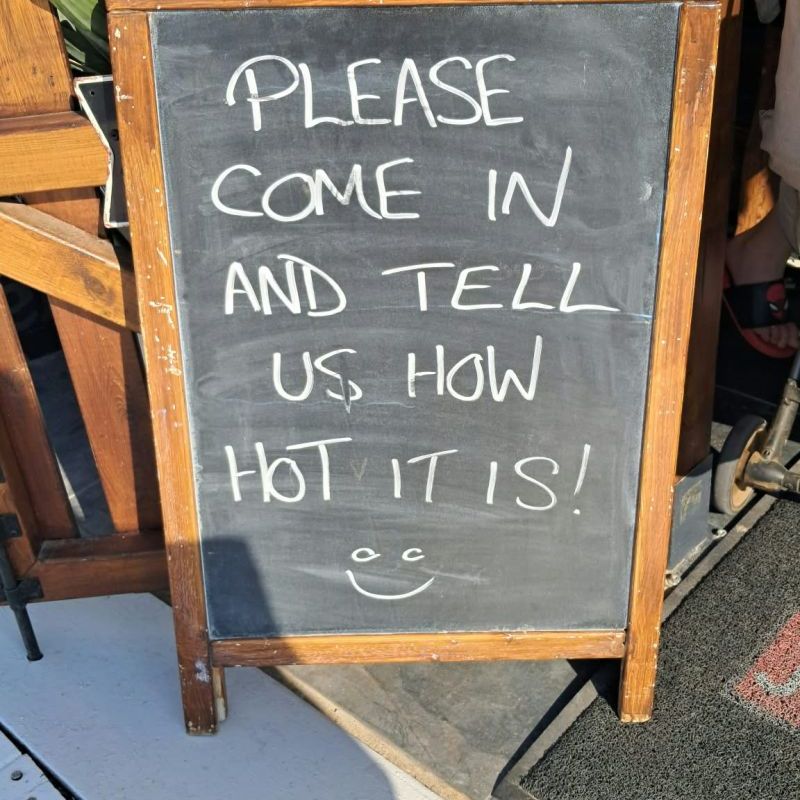 PLEASE
COME IN
AND TELL
US HOW
HOT IT IS!